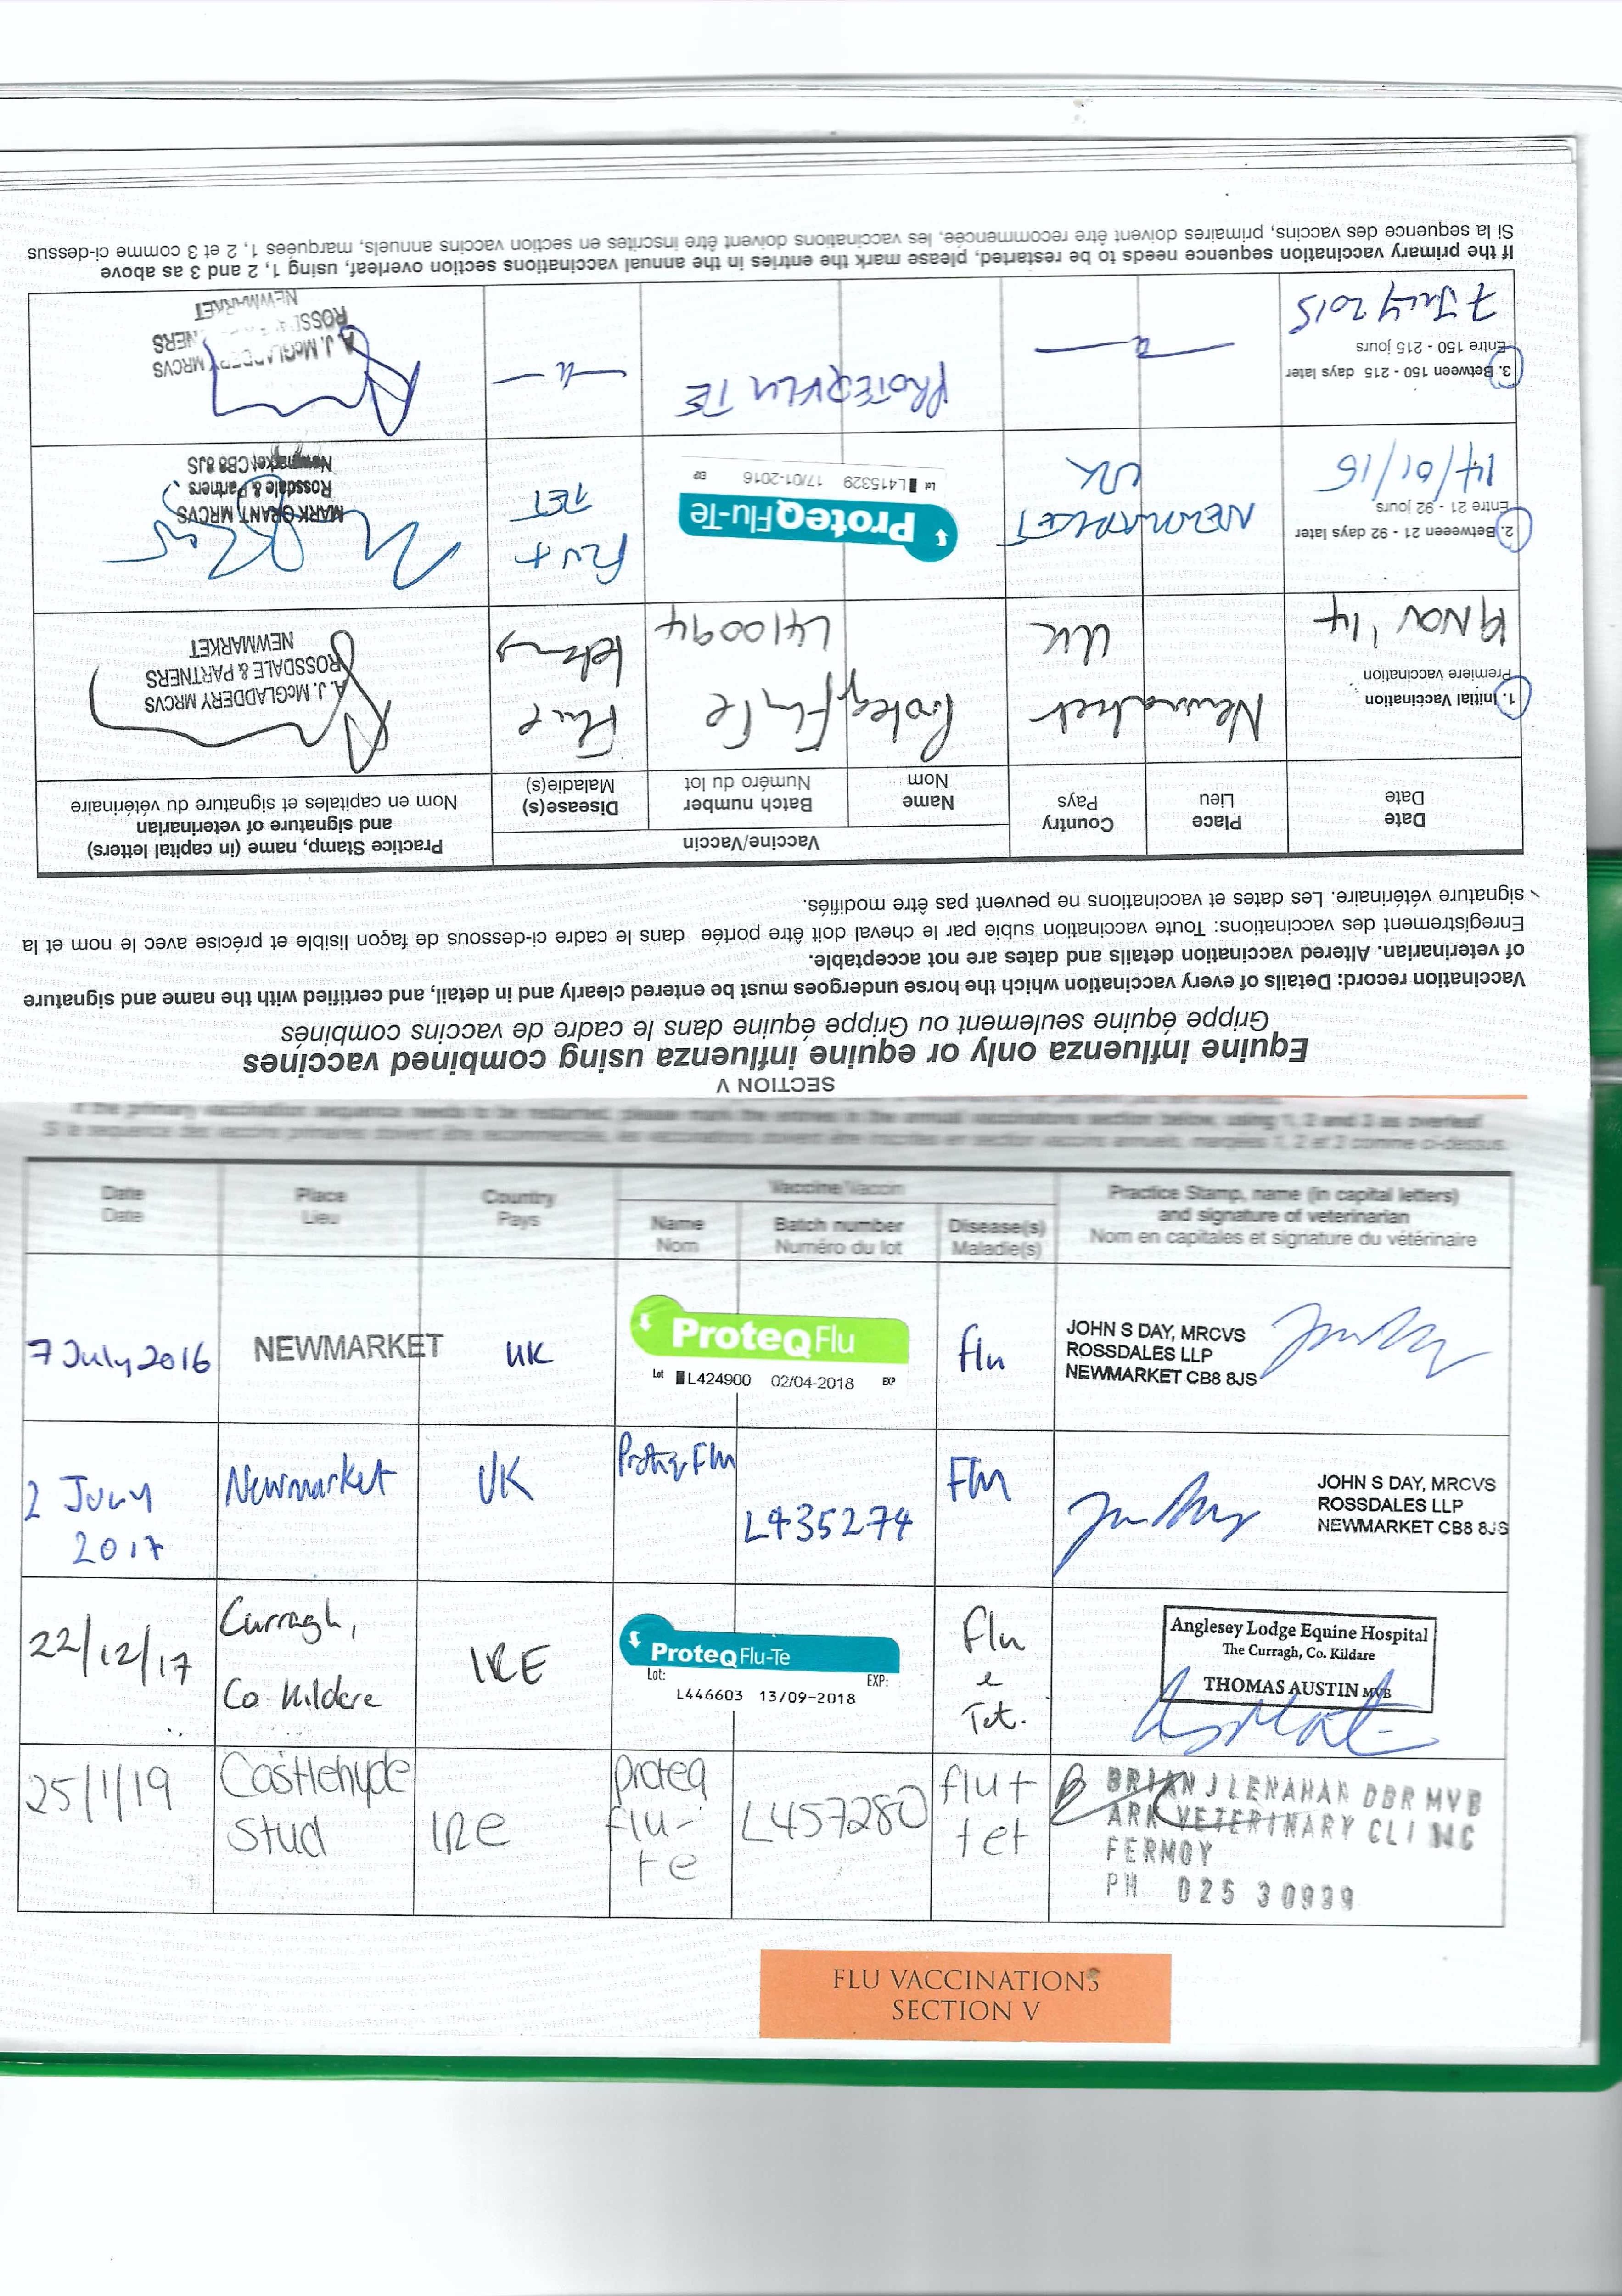 SECTION V
Equine influenza only or equine influenza using combined vaccines
Grippe équine seulement ou Grippe équine dans le cadre de vaccins combinés
Vaccination record: Details of every vaccination which the horse undergoes must be entered clearly and in detail, and certified with the name and signature
of veterinarian. Altered vaccination details and dates are not acceptable.
Enregistrement des vaccinations: Toute vaccination subie par le cheval doit être portée dans le cadre ci-dessous de façon lisible et précise avec le nom et la
signature vétérinaire. Les dates et vaccinations ne peuvent pas être modifiés.
Date
Date
Place
Lieu
Country
Pays
Vaccine/Vaccin
Name
Nom
Batch number
Numéro du lot
Disease(s)
Maladie(s)
Practice Stamp, name (in capital letters)
and signature of veterinarian
Nom en capitales et signature du vétérinaire
1. Initial Vaccination
Première vaccination
19 Nov '14
Newmarket
UK
Proteq Flu Te
L410094
Flu &
tetanus
A. J. McGLADDERY MRCVS
ROSSDALE & PARTNERS
NEWMARKET
2. Betweeen 21 - 92 days later
Entre 21 - 92 jours
14/01/15
NEWMARKET
UK
ProteqFlu-Te
Lot L415329 17/01-2016 EXP
FLU +
TET
MARK GRANT MRCVS
Rossdale & Partners
Newmarket CB8 8JS
3. Between 150 - 215 days later
Entre 150 - 215 jours
7 July 2015
PROTEQFLU TE
A. J. McGLADDERY MRCVS
ROSSDALE & PARTNERS
NEWMARKET
If the primary vaccination sequence needs to be restarted, please mark the entries in the annual vaccinations section overleaf, using 1, 2 and 3 as above
Si la sequence des vaccins, primaires doivent être recommencée, les vaccinations doivent être inscrites en section vaccins annuels, marquées 1, 2 et 3 comme ci-dessus
If the primary vaccination sequence needs to be restarted, please mark the entries in the annual vaccinations section below, using 1, 2 and 3 as overleaf
Si la sequence des vaccins primaires doivent être recommencée, les vaccinations doivent être inscrites en section vaccins annuels, marquées 1, 2 et 3 comme ci-dessus.
Date
Date
Place
Lieu
Country
Pays
Vaccine/Vaccin
Name
Nom
Batch number
Numéro du lot
Disease(s)
Maladie(s)
Practice Stamp, name (in capital letters)
and signature of veterinarian
Nom en capitales et signature du vétérinaire
7 July 2016
NEWMARKET
UK
ProteqFlu
Lot L424900 02/04-2018 EXP
flu
JOHN S DAY, MRCVS
ROSSDALES LLP
NEWMARKET CB8 8JS
2 July
2017
Newmarket
UK
Proteq Flu
L435274
Flu
JOHN S DAY, MRCVS
ROSSDALES LLP
NEWMARKET CB8 8JS
22/12/17
Curragh,
Co. Kildare
IRE
ProteqFlu-Te
Lot: EXP:
L446603 13/09-2018
Flu
e
Tet.
Anglesey Lodge Equine Hospital
The Curragh, Co. Kildare
THOMAS AUSTIN MVB
25/1/19
Castlehyde
Stud
IRE
proteq
flu-
te
L457280
flu +
tet
BRIAN J LENAHAN DBR MVB
ARK VETERINARY CLINIC
FERMOY
PH 025 30939
FLU VACCINATIONS
SECTION V